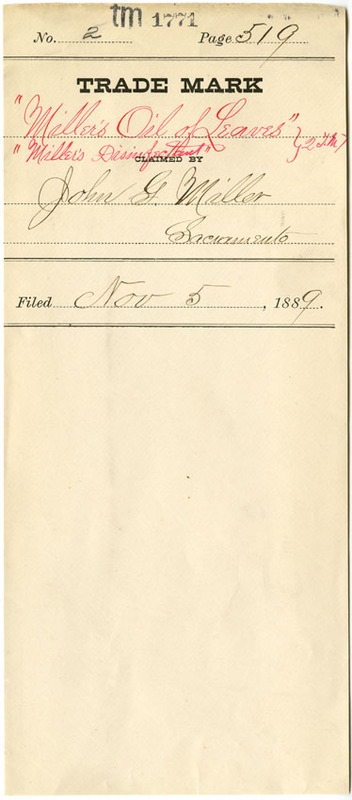 tm 1771
No. 2 Page 519
TRADE MARK
"Miller's Oil of Leaves"
"Miller's Disinfectant" } 2 TM
CLAIMED BY
John G. Miller
Sacramento
Filed Nov 5, 1889.